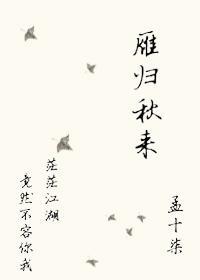 雁归秋来
孟十柒
茫茫江湖
竟然不容你我